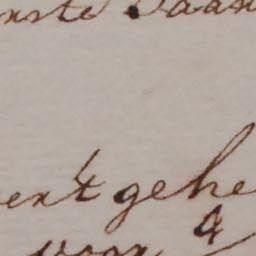 nste daan
ent gehe
voor 4